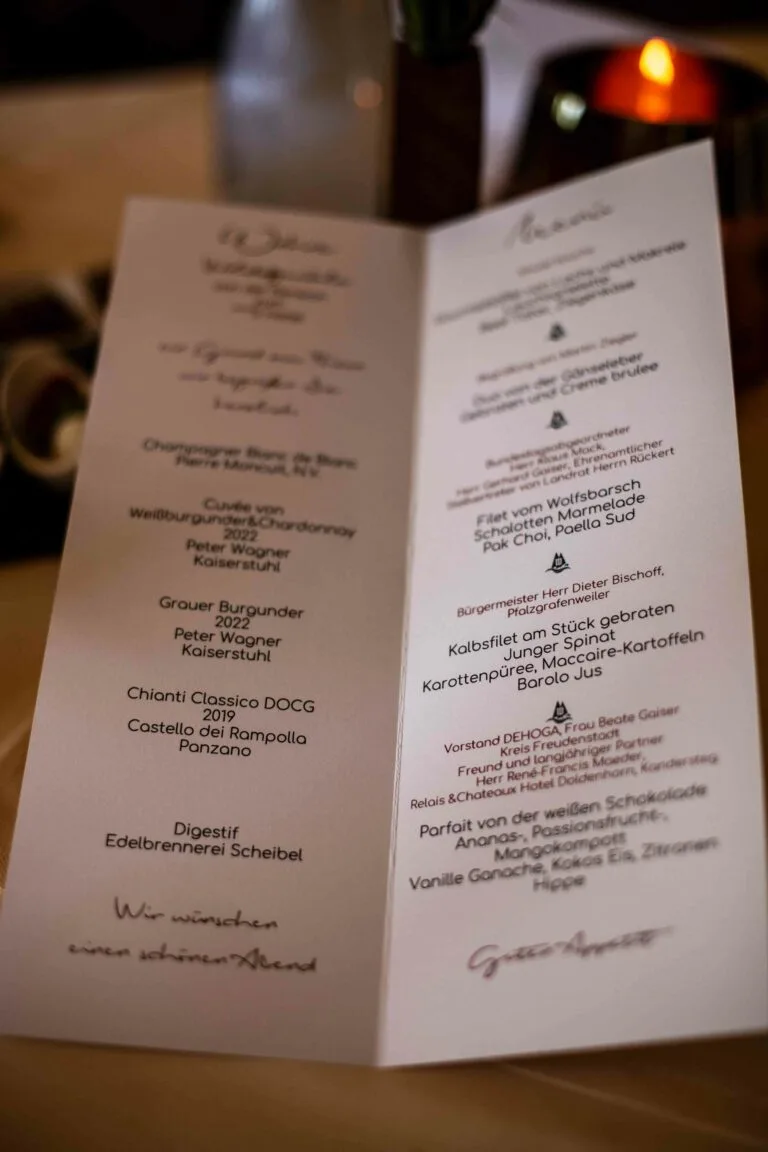 Champagner Blanc de Blanc
Pierre Moncuit, N.V.
Cuvée von
Weißburgunder&Chardonnay
2022
Peter Wagner
Kaiserstuhl
Grauer Burgunder
2022
Peter Wagner
Kaiserstuhl
Chianti Classico DOCG
2019
Castello dei Rampolla
Panzano
Digestif
Edelbrennerei Scheibel
Wir wünschen
einen schönen Abend
Menü
Begrüßung von Martin Ziegler
Duo von der Gänseleber
Gebraten und Creme brulee
Bundestagsabgeordneter
Herr Klaus Mack,
Herr Gerhard Gaiser, Ehrenamtlicher
Stellvertreter von Landrat Herrn Rückert
Filet vom Wolfsbarsch
Schalotten Marmelade
Pak Choi, Paella Sud
Bürgermeister Herr Dieter Bischoff,
Pfalzgrafenweiler
Kalbsfilet am Stück gebraten
Junger Spinat
Karottenpüree, Maccaire-Kartoffeln
Barolo Jus
Vorstand DEHOGA, Frau Beate Gaiser
Kreis Freudenstadt
Freund und langjähriger Partner
Herr René-Francis Maeder,
Relais &Chateaux Hotel Doldenhorn, Kandersteg
Parfait von der weißen Schokolade
Ananas-, Passionsfrucht-,
Mangokompott
Vanille Ganache, Kokos Eis, Zitronen
Hippe
Guten Appetit